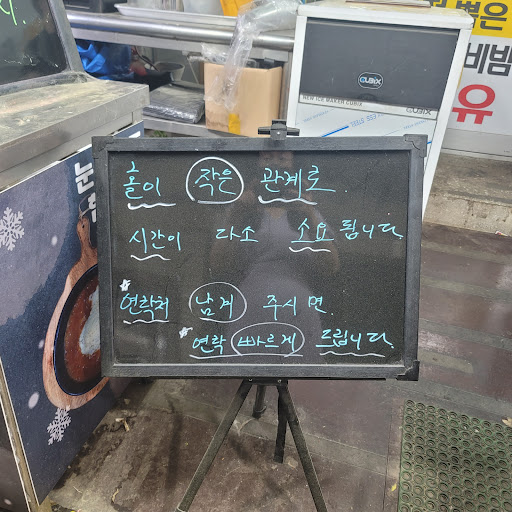 홀이 작은 관계로.
시간이 다소 소요 됩니다.
*연락처 남겨 주시면.
*연락 빠르게 드립니다.
CUBIX
NEW ICE MAKER CUBIX
CUBIX
뽑은
비빔
유
눈